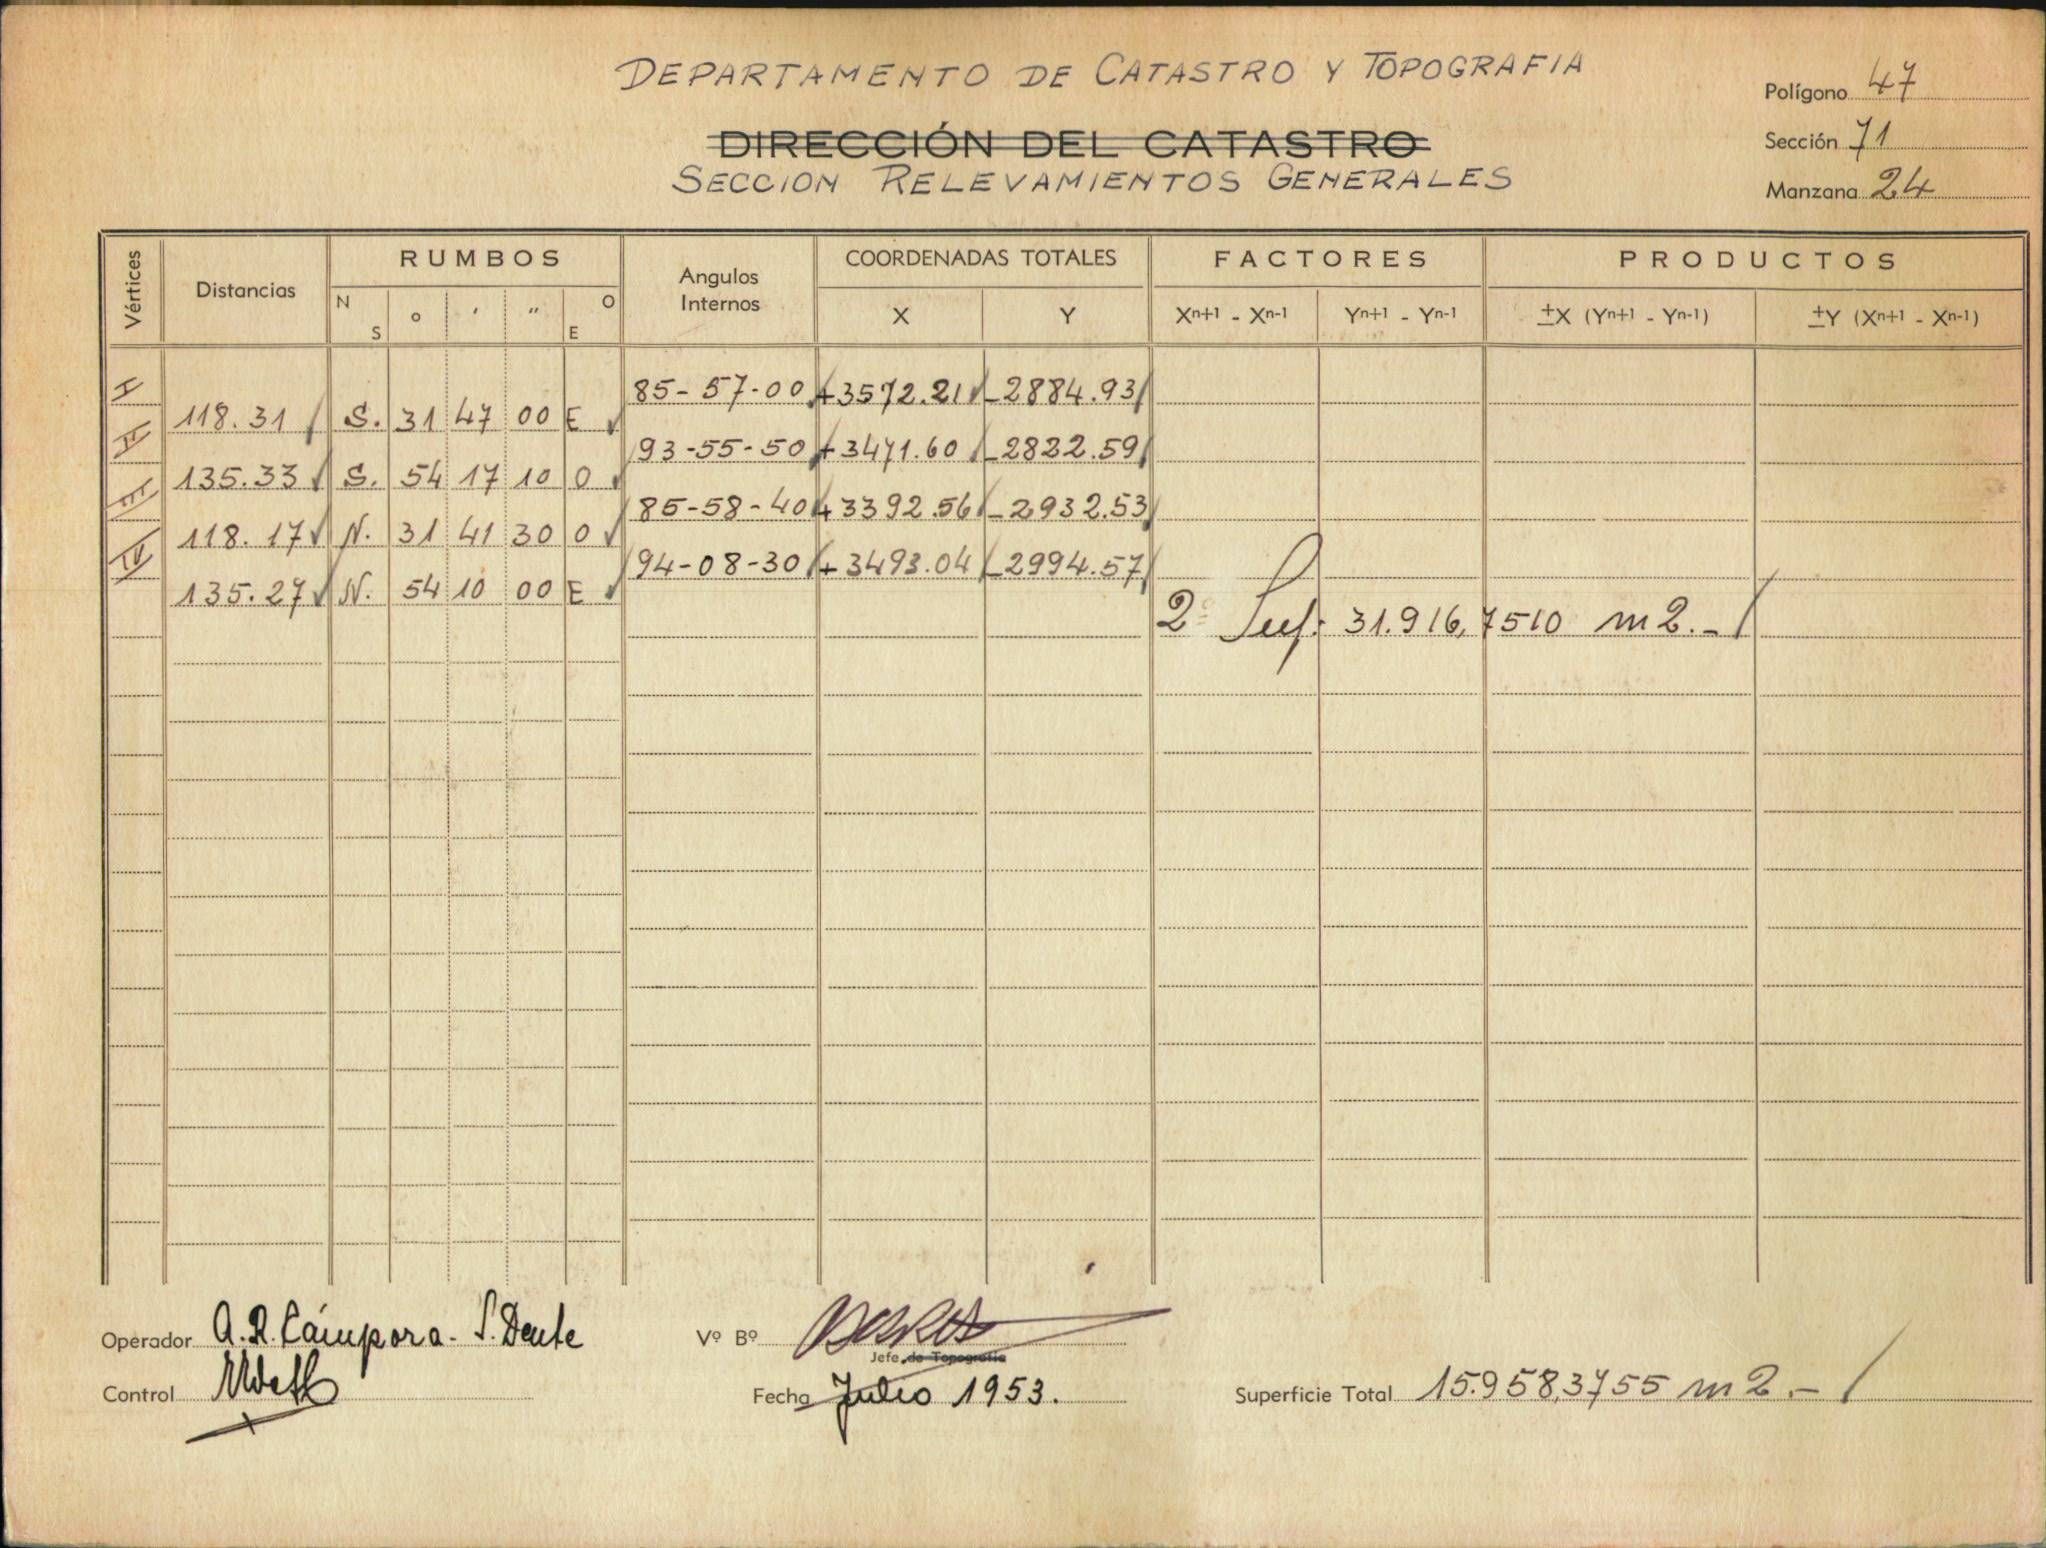 DEPARTAMENTO DE CATASTRO Y TOPOGRAFIA
DIRECCIÓN DEL CATASTRO
SECCION RELEVAMIENTOS GENERALES
Polígono 47
Sección 71
Manzana 24
Vértices Distancias RUMBOS Angulos Internos COORDENADAS TOTALES FACTORES PRODUCTOS
N S o ' " O E X Y Xn+1 - Xn-1 Yn+1 - Yn-1 ±X (Yn+1 - Yn-1) ±Y (Xn+1 - Xn-1)
I 85-57-00 +3572.21 -2884.93
118.31 S. 31 47 00 E
II 93-55-50 +3471.60 -2822.59
135.33 S. 54 17 10 O
III 85-58-40 +3392.56 -2932.53
118.17 N. 31 41 30 O
IV 94-08-30 +3493.04 -2994.57
135.27 N. 54 10 00 E
2 Sup: 31.916,7510 m2.-
Operador A.R. Cámpora - S. Dente
Vº Bº
Jefe de Topografía
Control
Fecha Julio 1953.
Superficie Total 15.958,3755 m2.-